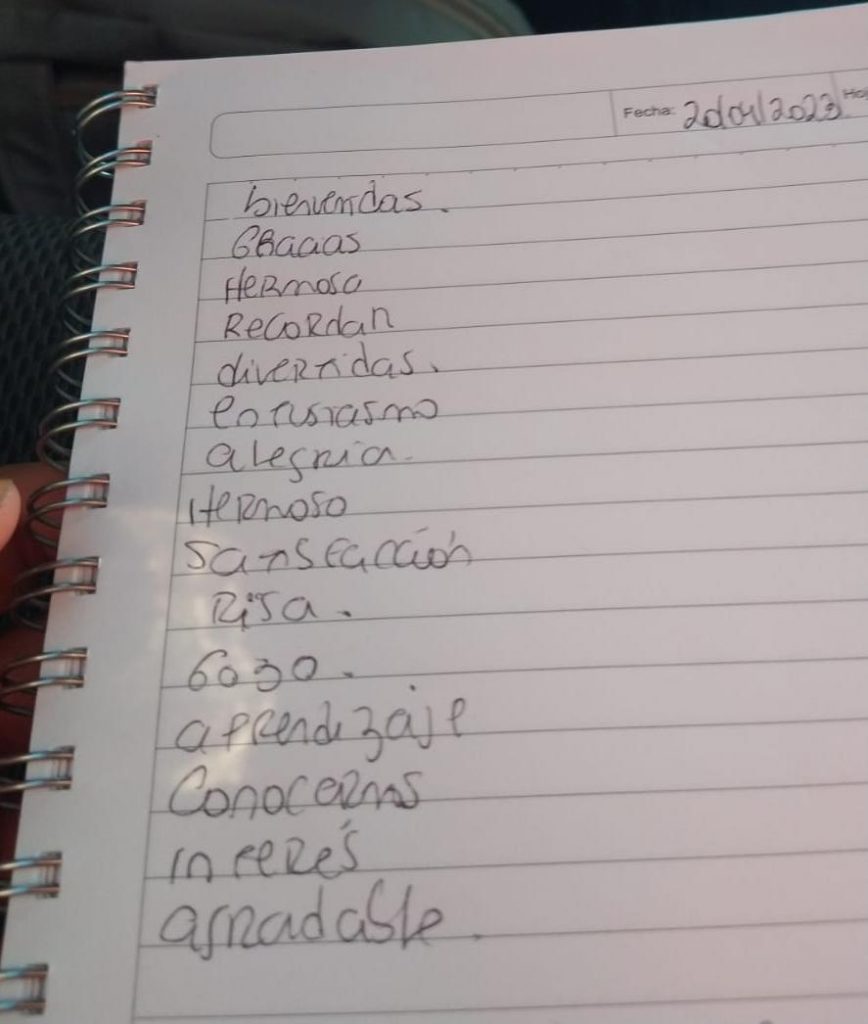 Fecha: 20/04/2023 Hoj
bienvendas.
GRaaas
HeRmosa
RecoRdaR
diveRtidas.
entusiasmo
alegria.
HeRmoso
Satisfacción
Risa.
Gozo.
apRendizaje
ConoceRnos
inteRés
agRadable.